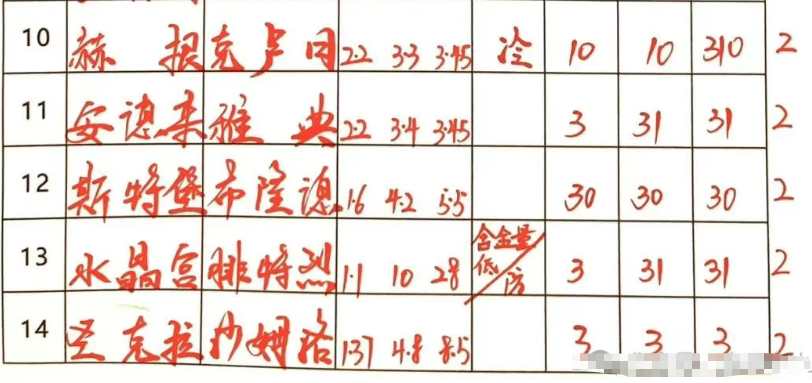 10 赫根克卢日 2.2 3.3 3.45 冷 10 10 310 2
11 安德来雅典 2.2 3.4 3.45 3 31 31 2
12 斯特堡布隆德 1.6 4.2 5.5 30 30 30 2
13 水晶宫腓特烈 1.1 10 28 含金量低/房 3 31 31 2
14 圣克拉沙姆洛 1.37 4.8 8.5 3 3 3 2